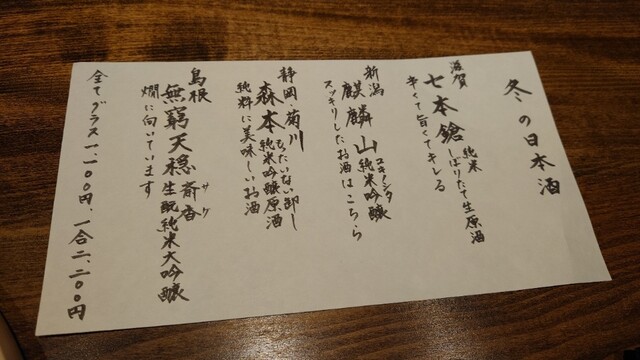 冬の日本酒
滋賀
七本鎗 純米 しぼりたて生原酒
辛くて旨くてキレる
新潟
麒麟山 純米吟醸 ユキノシタ
スッキリしたお酒はこちら
静岡・菊川
森本 もったいない卸し 純米吟醸原酒
純粋に美味しいお酒
島根
無窮天穏 齋香 サケ 生酛純米大吟醸
燗に向いています
全てグラス一、一〇〇円、一合二、二〇〇円